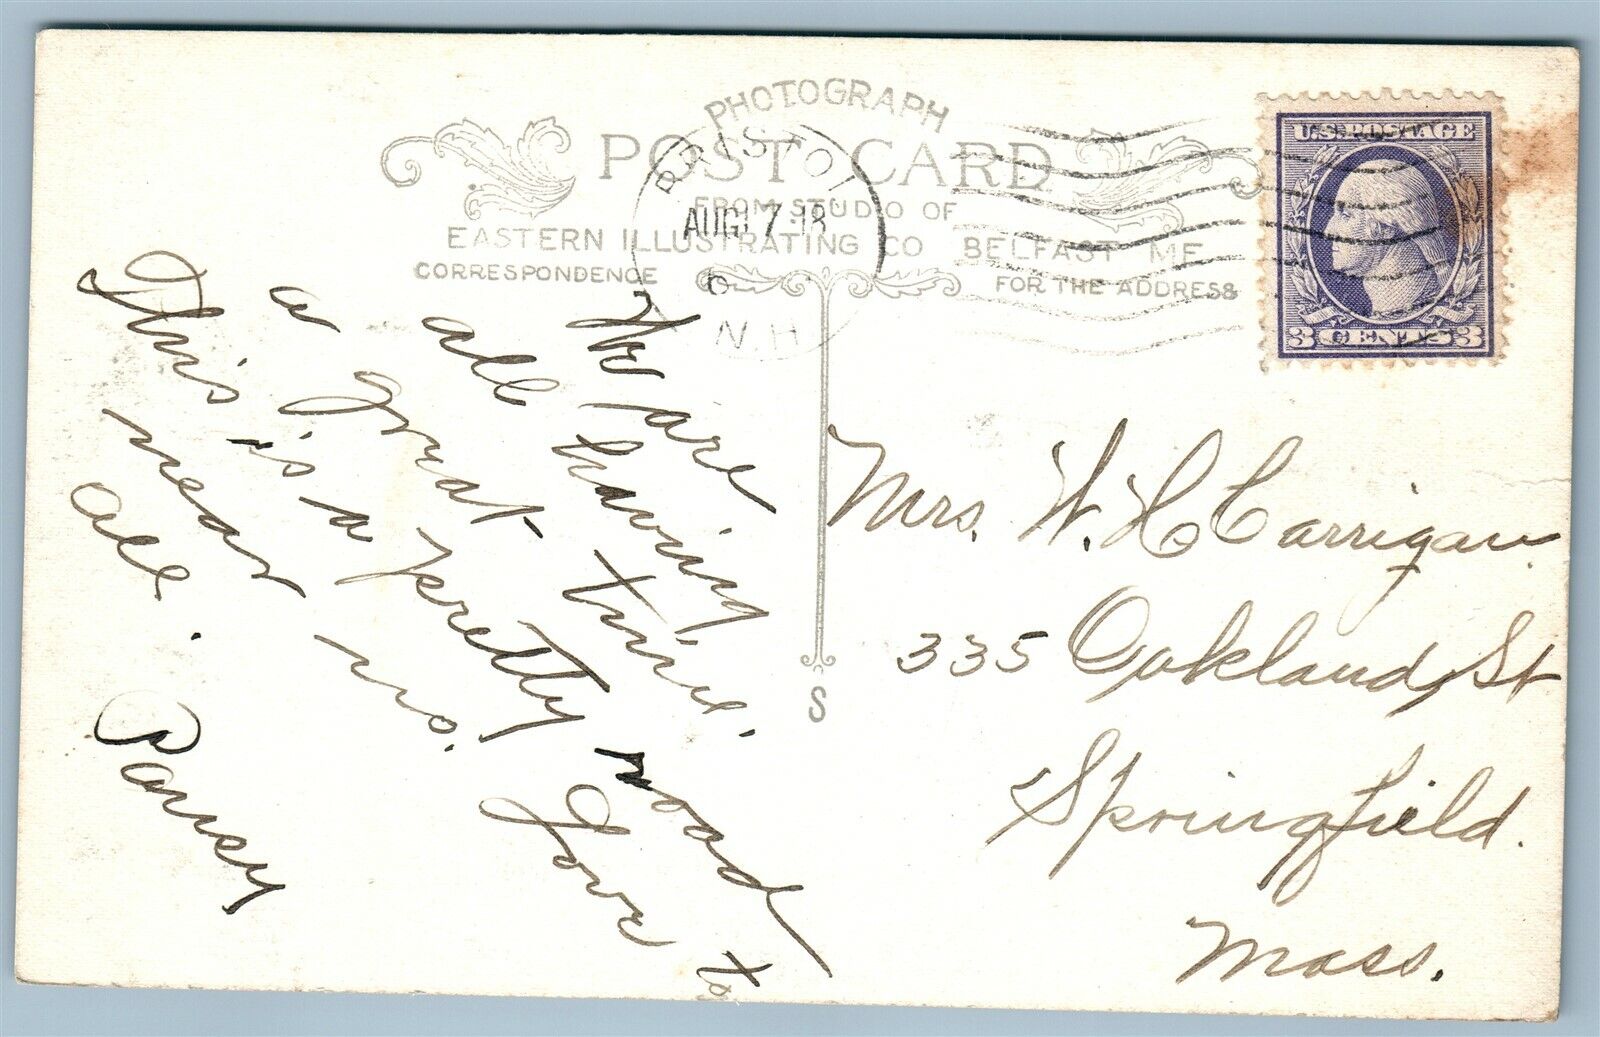 PHOTOGRAPH
POST CARD
FROM STUDIO OF
EASTERN ILLUSTRATING CO BELFAST ME
CORRESPONDENCE
FOR THE ADDRESS
BRISTOL
AUG 7 18
N.H.
U.S. POSTAGE
3 CENTS 3
We are
all having
a great time.
This is a pretty road
near us. Love to
all.
Pansy
Mrs. W. H. Carrigan
335 Oakland St
Springfield.
Mass.
S